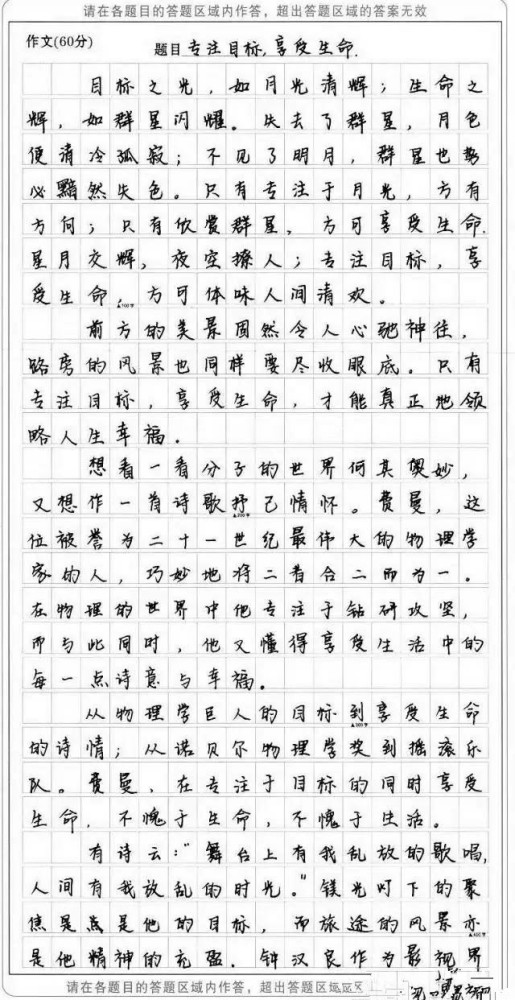 请在各题目的答题区域内作答，超出答题区域的答案无效
作文(60分)
题目 专注目标,享受生命.
目标之光，如月光清辉；生命之
辉，如群星闪耀。失去了群星，月色
便清冷孤寂；不见了明月，群星也势
必黯然失色。只有专注于月光，方有
方向；只有欣赏群星，方可享受生命.
星月交辉，夜空撩人；专注目标，享
受生命，方可体味人间清欢。
▲100字
前方的美景固然令人心驰神往，
路旁的风景也同样要尽收眼底。只有
专注目标，享受生命，才能真正地领
略人生幸福。
想看一看分子的世界何其奥妙，
又想作一首诗歌抒己情怀。费曼，这
▲200字
位被誉为二十一世纪最伟大的物理学
家的人，巧妙地将二者合二而为一。
在物理的世界中他专注于钻研攻坚，
而与此同时，他又懂得享受生活中的
每一点诗意与幸福。
从物理学巨人的目标到享受生命
的诗情；从诺贝尔物理学奖到摇滚乐
队。费曼，在专注于目标的同时享受
生命，不愧于生命，不愧于生活。
有诗云："舞台上有我乱放的歌唱,
人间有我放乱的时光。"镁光灯下的聚
焦是点是他的目标，而旅途的风景亦
是他精神的充盈。钟汉良作为影视界
请在各题目的答题区域内作答，超出答题区